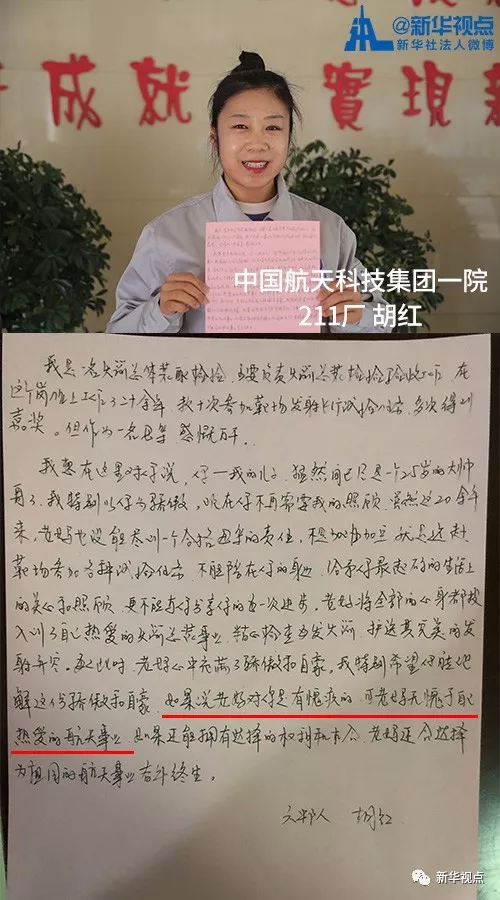 @新华视点
新华社法人微博
成就 實現
中国航天科技集团一院
211厂 胡红
我是一名火箭总体装配检验,主要负责火箭总装检验验收工作,在
这个岗位上工作了二十余年,数十次参加靶场发射飞行试验任务,多次得到
嘉奖。但作为一名母亲感慨万千。
我想在这里对孩子说,仔—我的儿子,猛然间已尽是一个25岁的大帅
哥了,我特别以仔为骄傲,现在仔不再需要我的照顾,虽然这20余年
来,老妈也没能尽到一个合格母亲的责任,不是加班加点就是远赴
靶场参加各种试验任务,不能陪在仔的身边,给予仔最起码的生活上
的关心和照顾,更不能与仔分享仔的每一次进步。老妈将全部的心身都投
入到了自己热爱的火箭总装事业,精心检查每发火箭,护送其完美的发
射升空。每此时,老妈心中充满了骄傲和自豪。我特别希望仔能理
解这份骄傲和自豪,如果说老妈对仔是有愧疚的,可老妈无愧于自己
热爱的航天事业,如果还能拥有选择的权利和机会,老妈还会选择
为祖国的航天事业奋斗终生。
六部人 胡红
新华视点